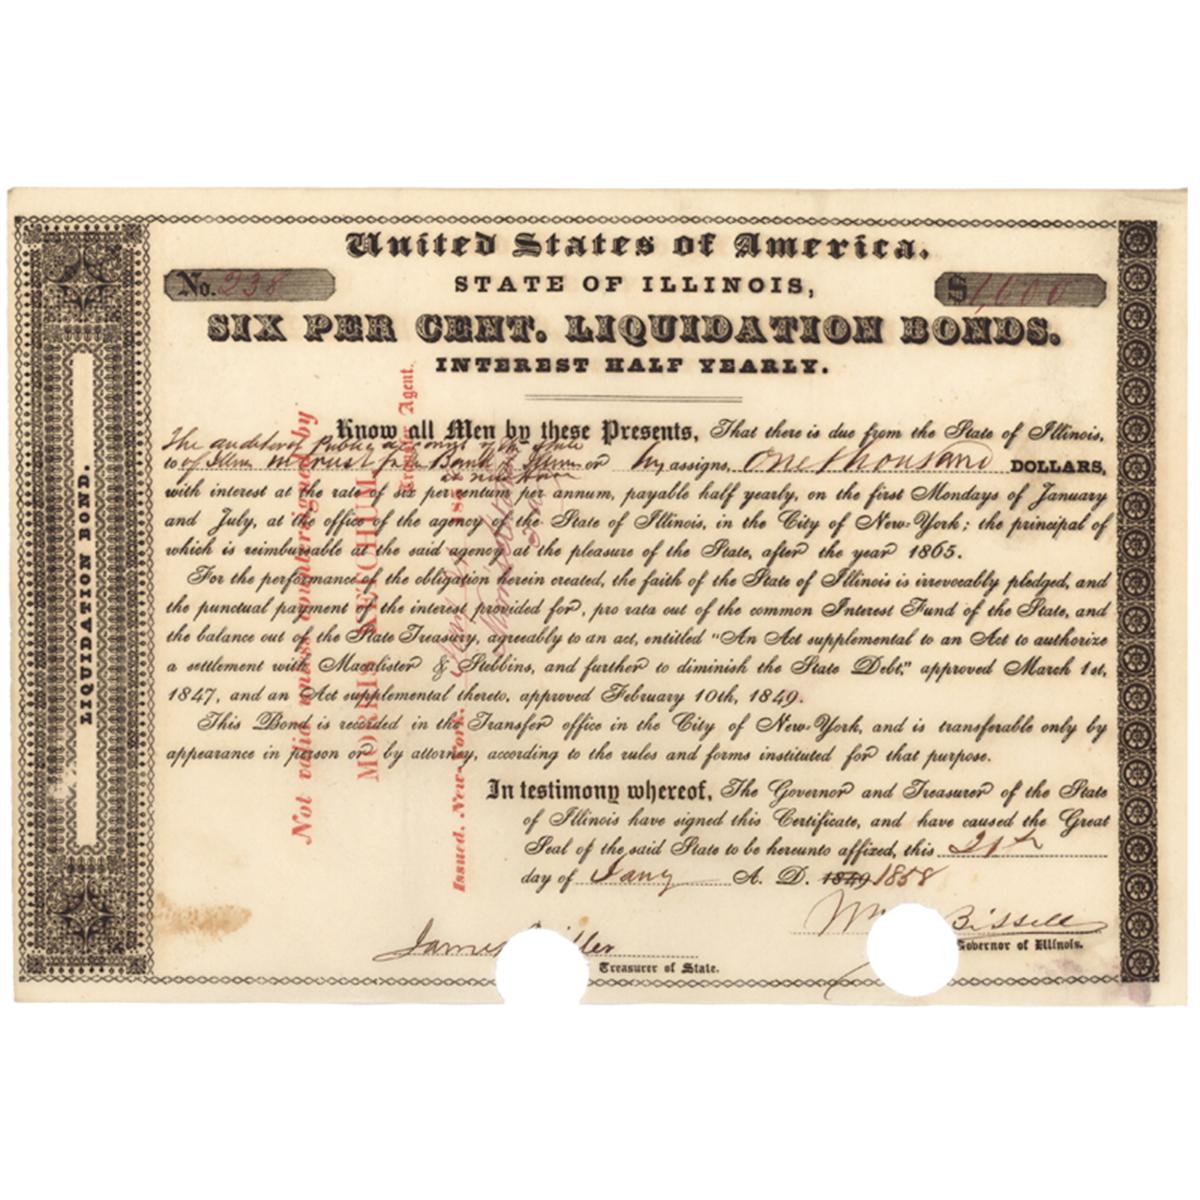 United States of America,
No. 238
STATE OF ILLINOIS,
$1,000
SIX PER CENT. LIQUIDATION BONDS.
INTEREST HALF YEARLY.
Know all Men by these Presents, That there is due from the State of Illinois,
The auditor of Public accounts of the State
to of Illinois in trust for Bank of or his assigns, One thousand DOLLARS,
at New Haven
with interest at the rate of six per centum per annum, payable half yearly, on the first Mondays of January
and July, at the office of the agency of the State of Illinois, in the City of New-York; the principal of
which is reimbursable at the said agency at the pleasure of the State, after the year 1865.
For the performance of the obligation herein created, the faith of the State of Illinois is irrevocably pledged, and
the punctual payment of the interest provided for, pro rata out of the common Interest Fund of the State, and
the balance out of the State Treasury, agreeably to an act, entitled "An Act supplemental to an Act to authorize
a settlement with Macalister & Stebbins, and further to diminish the State Debt," approved March 1st,
1847, and an Act supplemental thereto, approved February 10th, 1849.
This Bond is recorded in the Transfer office in the City of New-York, and is transferable only by
appearance in person or by attorney, according to the rules and forms instituted for that purpose.
In testimony whereof, The Governor and Treasurer of the State
of Illinois have signed this Certificate, and have caused the Great
Seal of the said State to be hereunto affixed, this 21st
day of Jany A. D. 1849 1858
Wm Bissell
Governor of Illinois.
James Miller
Treasurer of State.
LIQUIDATION BOND.
Not valid unless countersigned by
MORRIS KETCHUM,
Transfer Agent.
Issued, New-York,